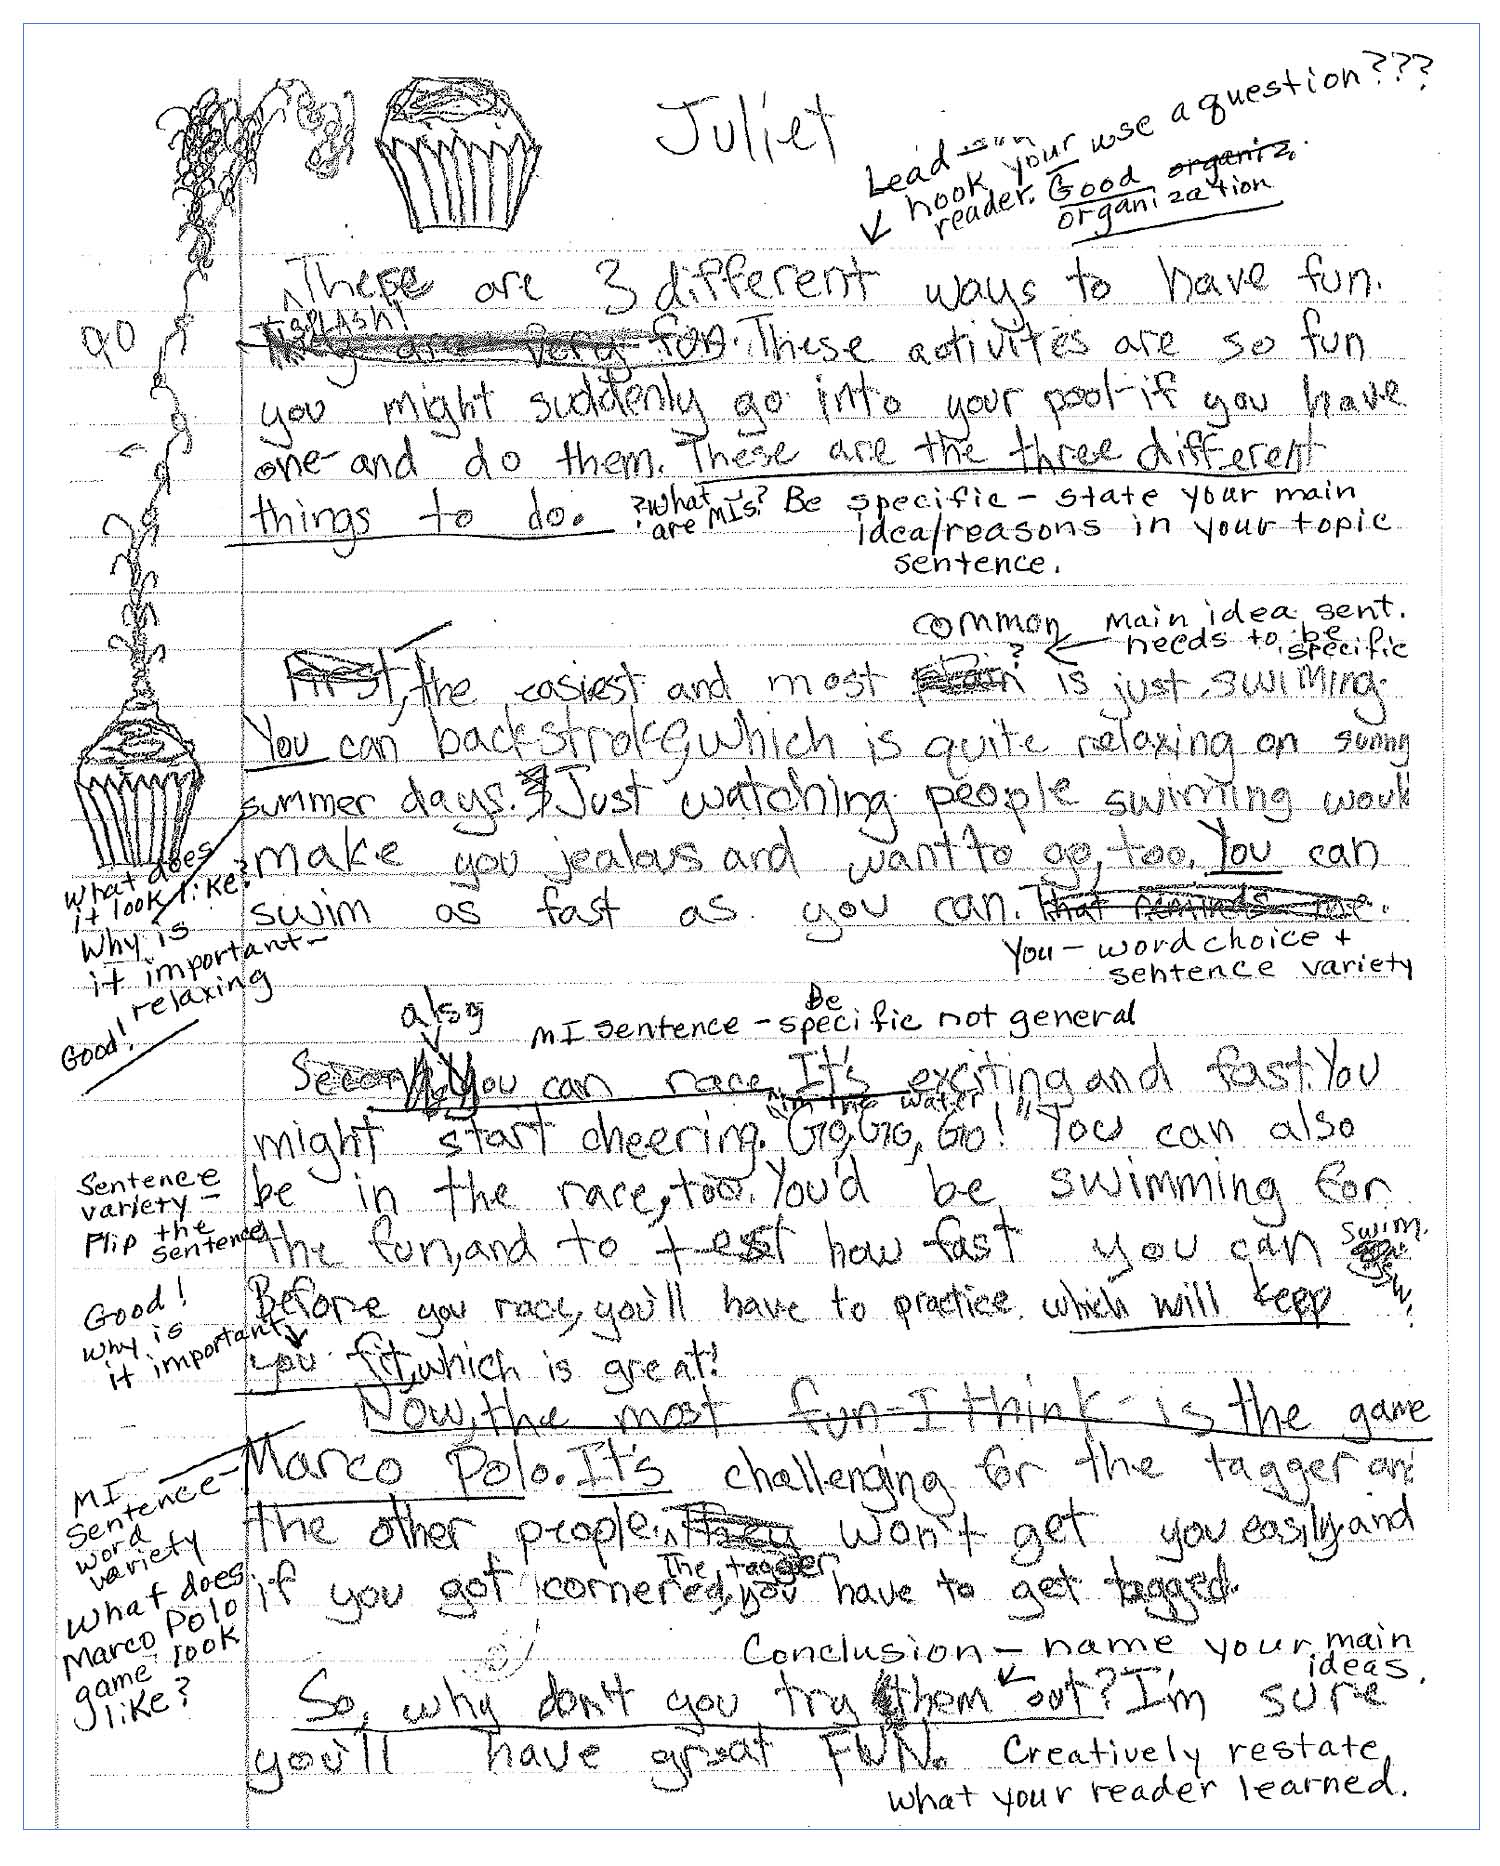 Juliet
Lead
hook your use a question???
reader. Good organiz.
organization
These are 3 different ways to have fun.
SPLASH!
90
They are very fun. These activites are so fun
you might suddenly go into your pool-if you have
one-and do them. These are the three different
things to do. ?What are MI's? Be specific - state your main
idea/reasons in your topic
sentence.
common Main idea sent.
? needs to be
specific
First, the easiest and most plain is just swiming.
You can backstroke, which is quite relaxing on sunny
summer days. Just watching people swiming would
make you jealous and want to go, too. You can
What does
it look like?
swim as fast as you can. That reminds me.
Why is
it important-
relaxing
Good!
You - word choice +
sentence variety
also
MI sentence - Be specific not general
Second, You can race. It's exciting and fast. You
in the water
might start cheering. "Go, Go, Go!" You can also
Sentence
variety -
Flip the
sentence
be in the race, too. You'd be swimming for
the fun, and to test how fast you can swim.
Good!
Why is
it important
Before you race, you'll have to practice which will kepp
you fit, which is great!
Now, the most fun-I think-is the game
Marco Polo. It's challenging for the tagger and
MI
Sentence-
word
variety
the other people. They won't get you easily and
The tagger
if you got cornered, you have to get tagged.
What does
Marco Polo
game look
like?
Conclusion - name your main
ideas.
So, why don't you try them out? I'm sure
you'll have great FUN. Creatively restate
what your reader learned.